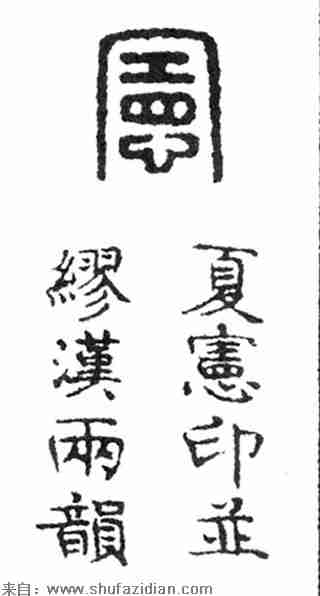 憲
夏憲印並
繆漢兩韻
来自：www.shufazidian.com